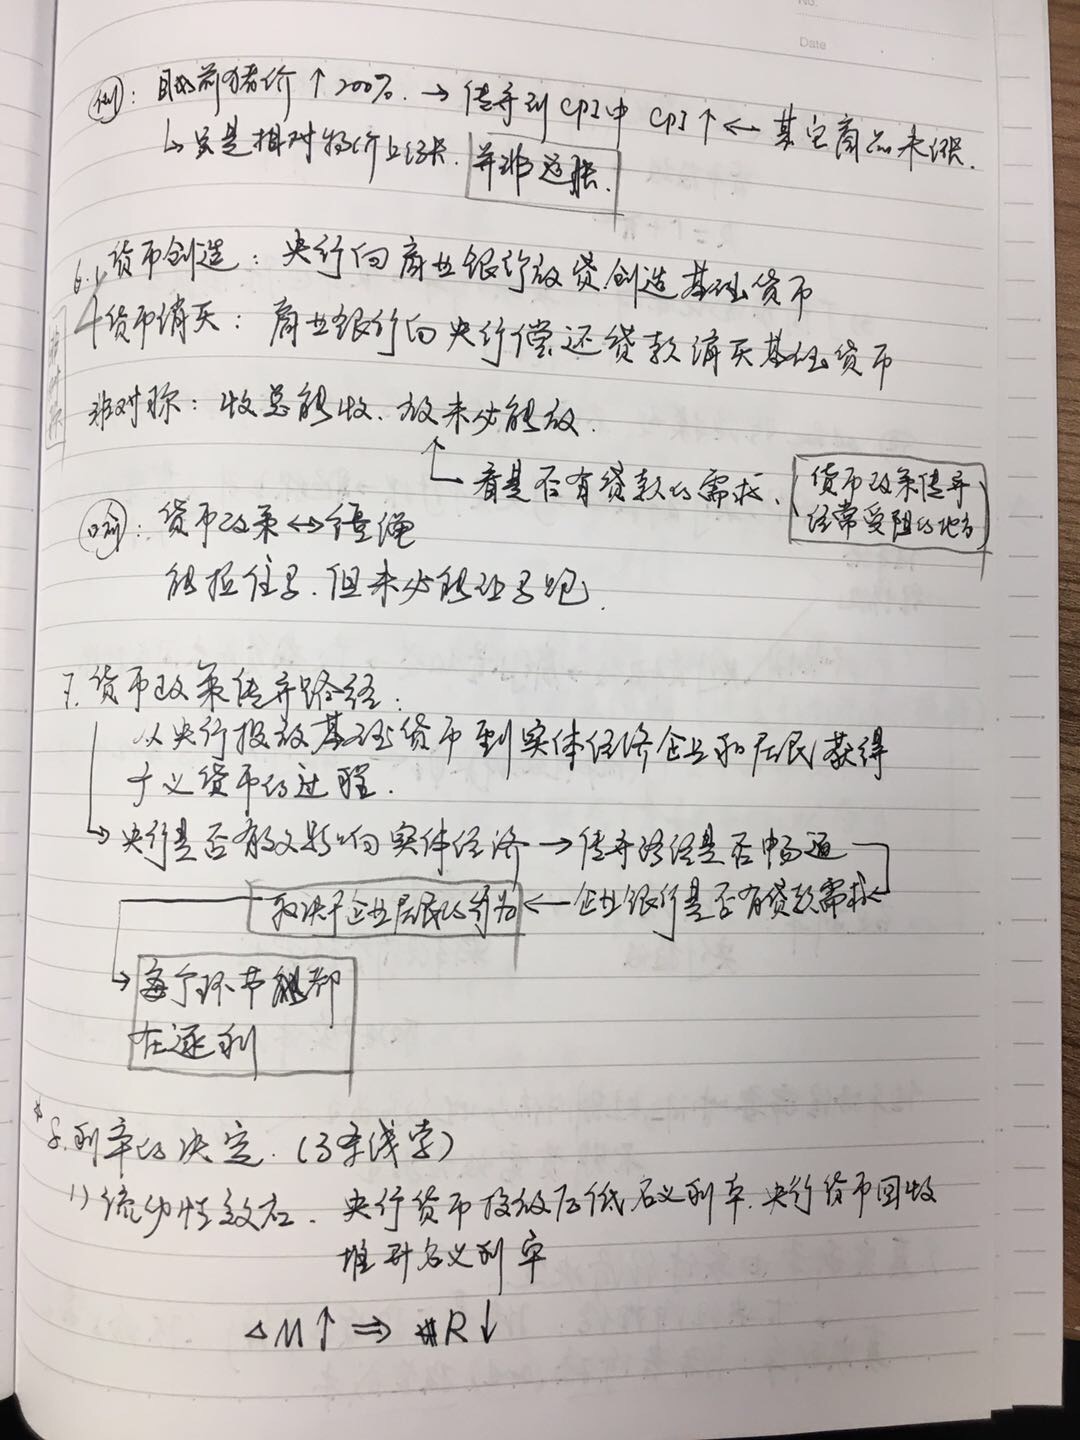 No.
Date
例: 目前猪价↑200%. → 传导到CPI中 CPI↑ ← 其它商品未涨.
↳ 只是相对物价上涨. 并非通胀.
6. 货币创造: 央行向商业银行放贷创造基础货币
货币消灭: 商业银行向央行偿还贷款消灭基础货币
非对称
非对称: 收总能收. 放未必能放.
看是否有贷款的需求. 货币政策传导
经常受阻的地方
货币政策↔缰绳
能拉住马. 但未必能让马跑.
7. 货币政策传导路径:
从央行投放基础货币到实体经济企业和居民获得
广义货币的过程.
↳ 央行是否有效影响实体经济 → 传导路径是否畅通
取决于企业居民的行为 ← 企业银行是否有贷款需求
每个环节都
在逐利
*8. 利率的决定. (3条线索)
1) 流动性效应. 央行货币投放压低名义利率. 央行货币回收
推升名义利率
△M↑ ⇒ R↓